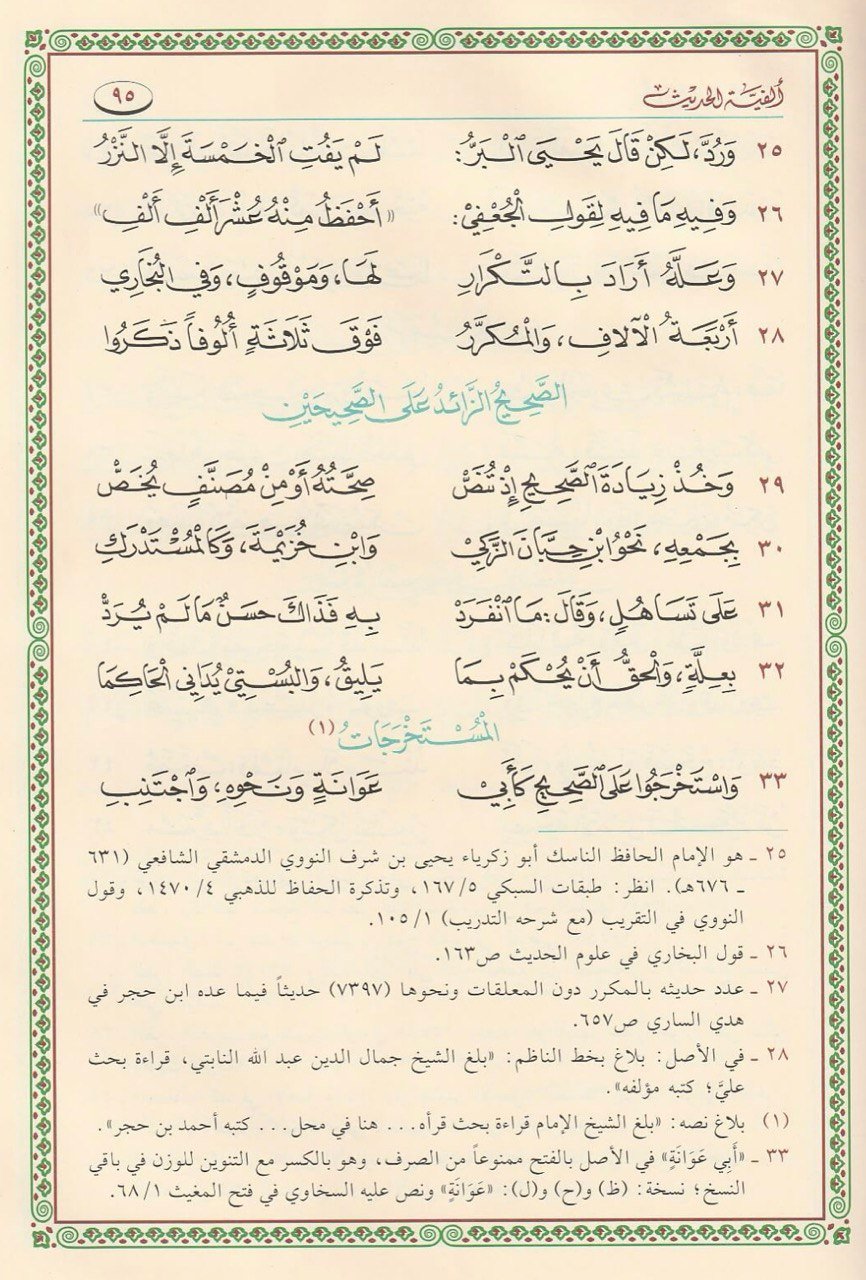 ألفية الحديث ٩٥
٢٥ وَرُدَّ، لَكِنْ قَالَ يَحْيَى ٱلْبَرُّ: لَمْ يَفُتِ ٱلْخَمْسَةَ إِلَّا النَّزْرُ
٢٦ وَفِيهِ مَا فِيهِ لِقَولِ الْجُعْفِيْ: «أَحْفَظُ مِنْهُ عُشْرَ أَلْفِ أَلْفِ»
٢٧ وَعَلَّهُ أَرَادَ بِالتَّكْرَارِ لَهَا، وَمَوْقُوفٍ، وَفِي البُخَارِي
٢٨ أَرْبَعَةُ الْآلَافِ، وَالْمُكَرَّرُ فَوْقَ ثَلَاثَةٍ أُلُوفاً ذَكَرُوا
الصَّحِيحُ الزَّائدُ عَلَى الصَّحِيحَيْنِ
٢٩ وَخُذْ زِيَادَةَ ٱلصَّحِيحِ إِذْ تُنَصّْ صِحَّتُهُ أَوْ مِنْ مُصَنَّفٍ يُخَصّْ
٣٠ بِجَمْعِهِ، نَحْوُ ابْنِ حِبَّانَ الزَّكِيْ وَابْنِ خُزَيْمَةَ، وَكَالْمُسْتَدْرَكِ
٣١ عَلَى تَسَاهُلٍ، وَقَالَ: مَا ٱنْفَرَدْ بِهِ فَذَاكَ حَسَنٌ مَا لَمْ يُرَدّْ
٣٢ بِعِلَّةٍ، وَالْحَقُّ أَنْ يُحْكَمْ بِمَا يَلِيقُ، وَالبُسْتِيْ يُدَانِي الْحَاكِمَا
الْمُسْتَخْرَجَاتُ (١)
٣٣ وَاسْتَخْرَجُوا عَلَى ٱلصَّحِيحِ كَأَبِيْ عَوَانَةٍ وَنَحْوِهِ، وَٱجْتَنِبِ
٢٥ ـ هو الإمام الحافظ الناسك أبو زكرياء يحيى بن شرف النووي الدمشقي الشافعي (٦٣١
ـ ٦٧٦هـ). انظر: طبقات السبكي ١٦٧/٥، وتذكرة الحفاظ للذهبي ١٤٧٠/٤، وقول
النووي في التقريب (مع شرحه التدريب) ١٠٥/١.
٢٦ ـ قول البخاري في علوم الحديث ص١٦٣.
٢٧ ـ عدد حديثه بالمكرر دون المعلقات ونحوها (٧٣٩٧) حديثاً فيما عده ابن حجر في
هدي الساري ص٦٥٧.
٢٨ ـ في الأصل: بلاغ بخط الناظم: «بلغ الشيخ جمال الدين عبد الله النابتي، قراءة بحث
عليَّ؛ كتبه مؤلفه».
(١) بلاغ نصه: «بلغ الشيخ الإمام قراءة بحث قرأه... هنا في محل... كتبه أحمد بن حجر».
٣٣ ـ «أَبِي عَوَانَةٍ» في الأصل بالفتح ممنوعاً من الصرف، وهو بالكسر مع التنوين للوزن في باقي
النسخ؛ نسخة: (ظ) و(ح) و(ل): «عَوَانَةٍ» ونص عليه السخاوي في فتح المغيث ٦٨/١.